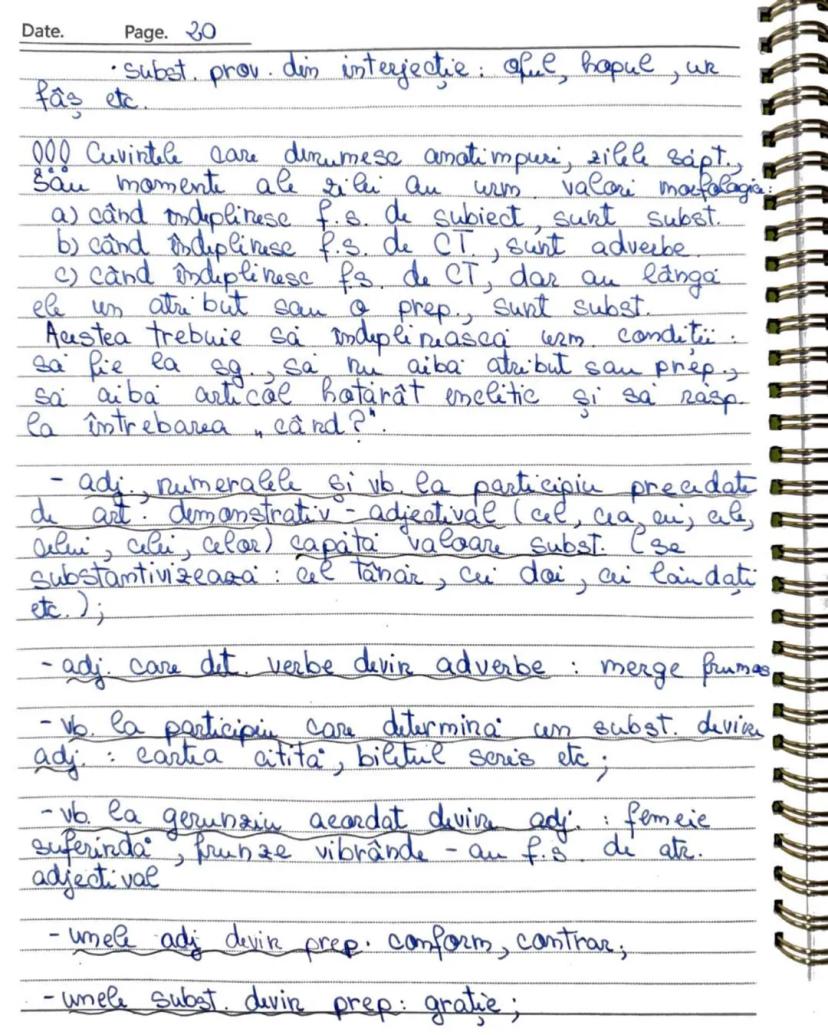 Date. Page. 20
• subst. prov. din interjecție: oful, hopul, un
fâș etc.
!!! Cuvintele care denumesc anotimpuri, zilele săpt.,
sau momente ale zilei au urm. valori morfologice:
a) când îndeplinesc f.s. de subiect, sunt subst.
b) când îndeplinesc f.s. de CT, sunt adverbe.
c) când îndeplinesc f.s. de CT, dar au lângă
ele un atribut sau o prep., sunt subst.
Acestea trebuie să îndeplinească urm. condiții:
să fie la sg., să nu aibă atribut sau prep.,
să aibă articol hotărât enclitic și să răsp.
la întrebarea „când?".
- adj., numeralele și vb. la participiu precedate
de art. demonstrativ-adjectival (cel, cea, cei, cele,
celui, celei, celor) capătă valoare subst. (se
substantivizează: cel tânăr, cei doi, cei lăudați
etc.);
- adj. care det. verbe devin adverbe: merge frumos
- vb. la participiu care determină un subst. devine
adj.: cartea citită, biletul scris etc;
- vb. la gerunziu acordat devine adj.: femeie
suferindă, frunze vibrânde - au f.s. de atr.
adjectival
- unele adj devin prep. conform, contrar;
- unele subst. devin prep: grație;